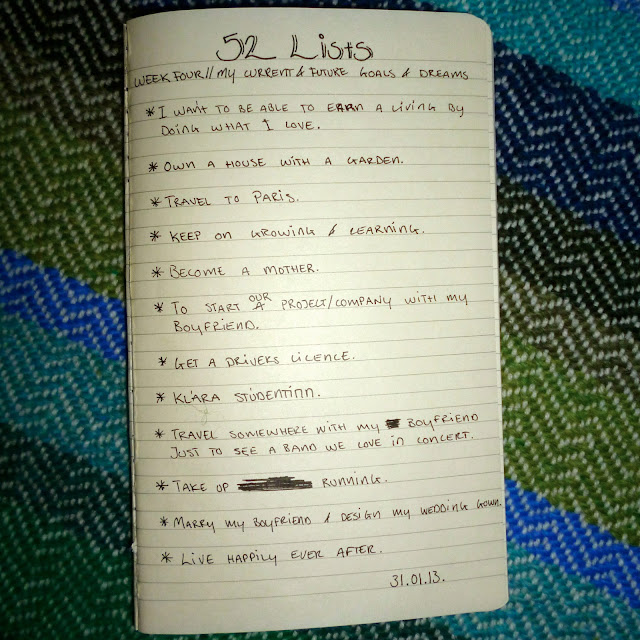 52 Lists
WEEK FOUR// MY CURRENT & FUTURE GOALS & DREAMS
* I WANT TO BE ABLE TO EARN A LIVING BY
DOING WHAT I LOVE.
* OWN A HOUSE WITH A GARDEN.
* TRAVEL TO PARIS.
* KEEP ON GROWING & LEARNING.
* BECOME A MOTHER.
* TO START OUR PROJECT/COMPANY WITH MY
BOYFRIEND.
* GET A DRIVERS LICENCE.
* KLÁRA STÚDENTINN.
* TRAVEL SOMEWHERE WITH MY BOYFRIEND
JUST TO SEE A BAND WE LOVE IN CONCERT.
* TAKE UP RUNNING.
* MARRY MY BOYFRIEND & DESIGN MY WEDDING GOWN.
* LIVE HAPPILY EVER AFTER.
31.01.13.